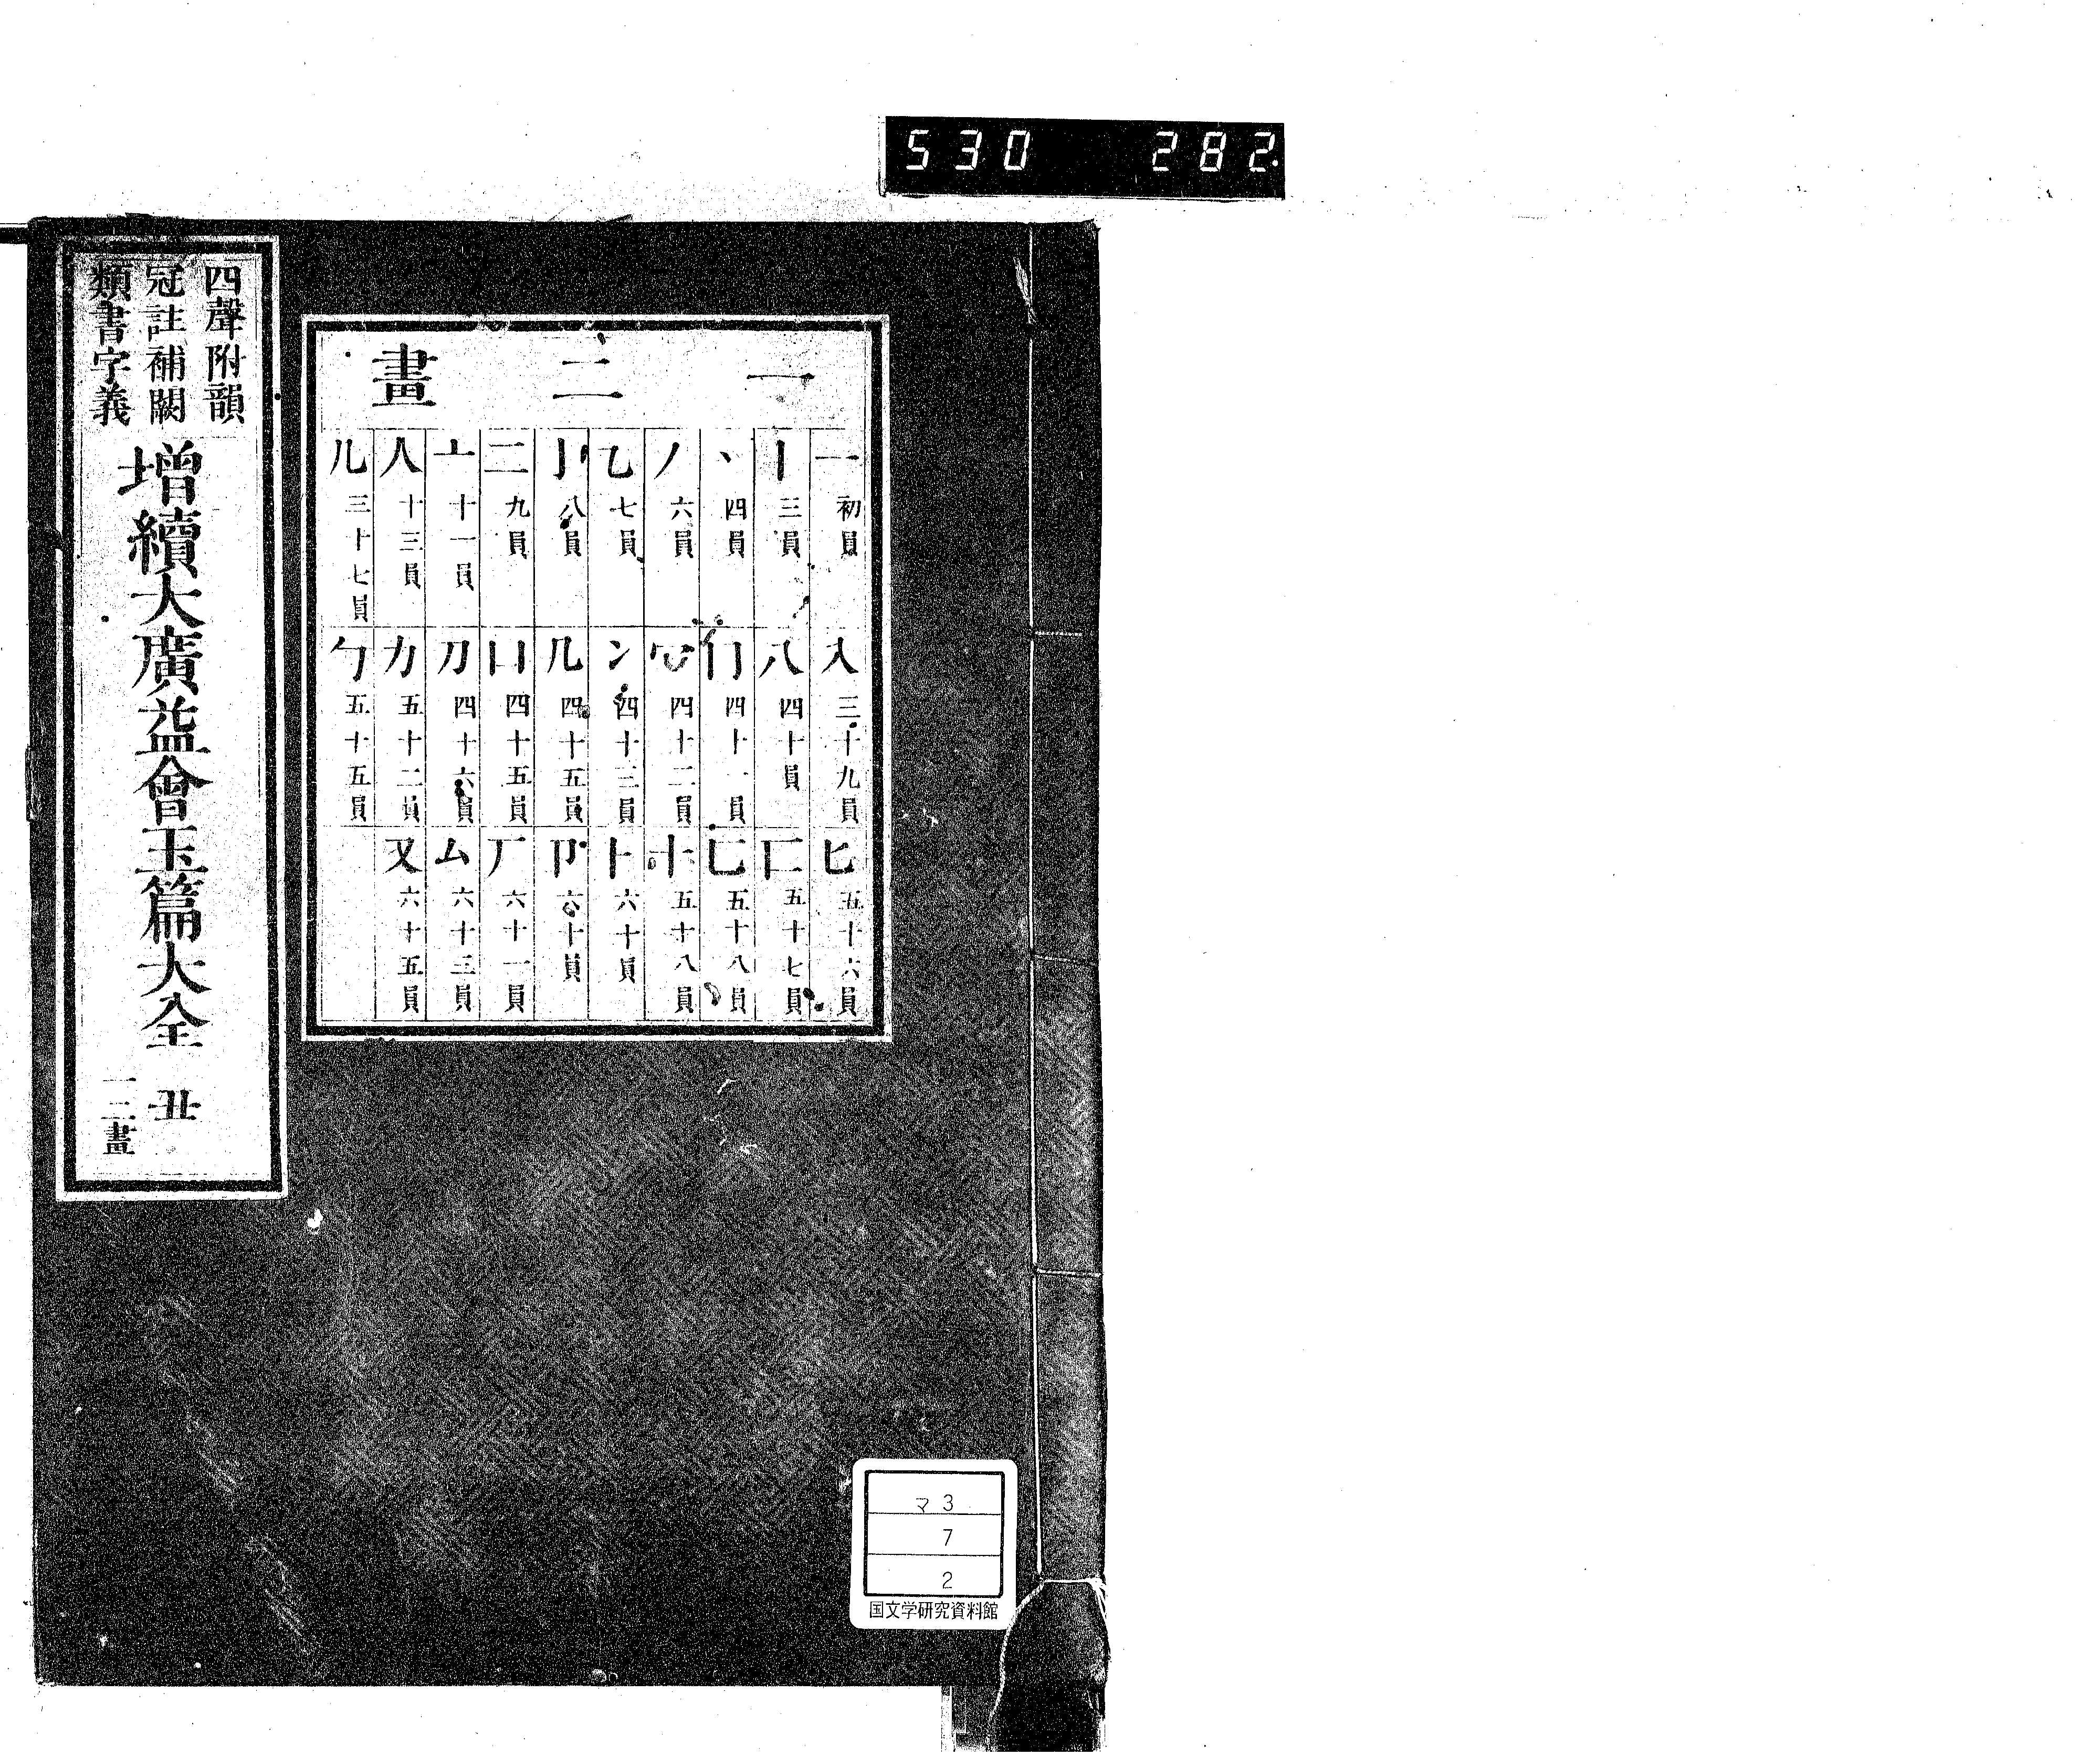 530 282
一二畫
一 初員
丨 三員
丶 四員
丿 六員
乙 七員
亅 八員
二 九員
亠 十一員
人 十三員
儿 三十七員
入 三十九員
八 四十員
冂 四十一員
冖 四十二員
冫 四十三員
几 四十五員
凵 四十五員
刀 四十六員
力 五十二員
勹 五十五員
匕 五十六員
匚 五十七員
匸 五十八員
十 五十八員
卜 六十員
卩 六十員
厂 六十一員
厶 六十三員
又 六十五員
四聲附韻
冠註補闕
類書字義
增續大廣益會玉篇大全 丑
一二畫
マ3
7
2
国文学研究資料館